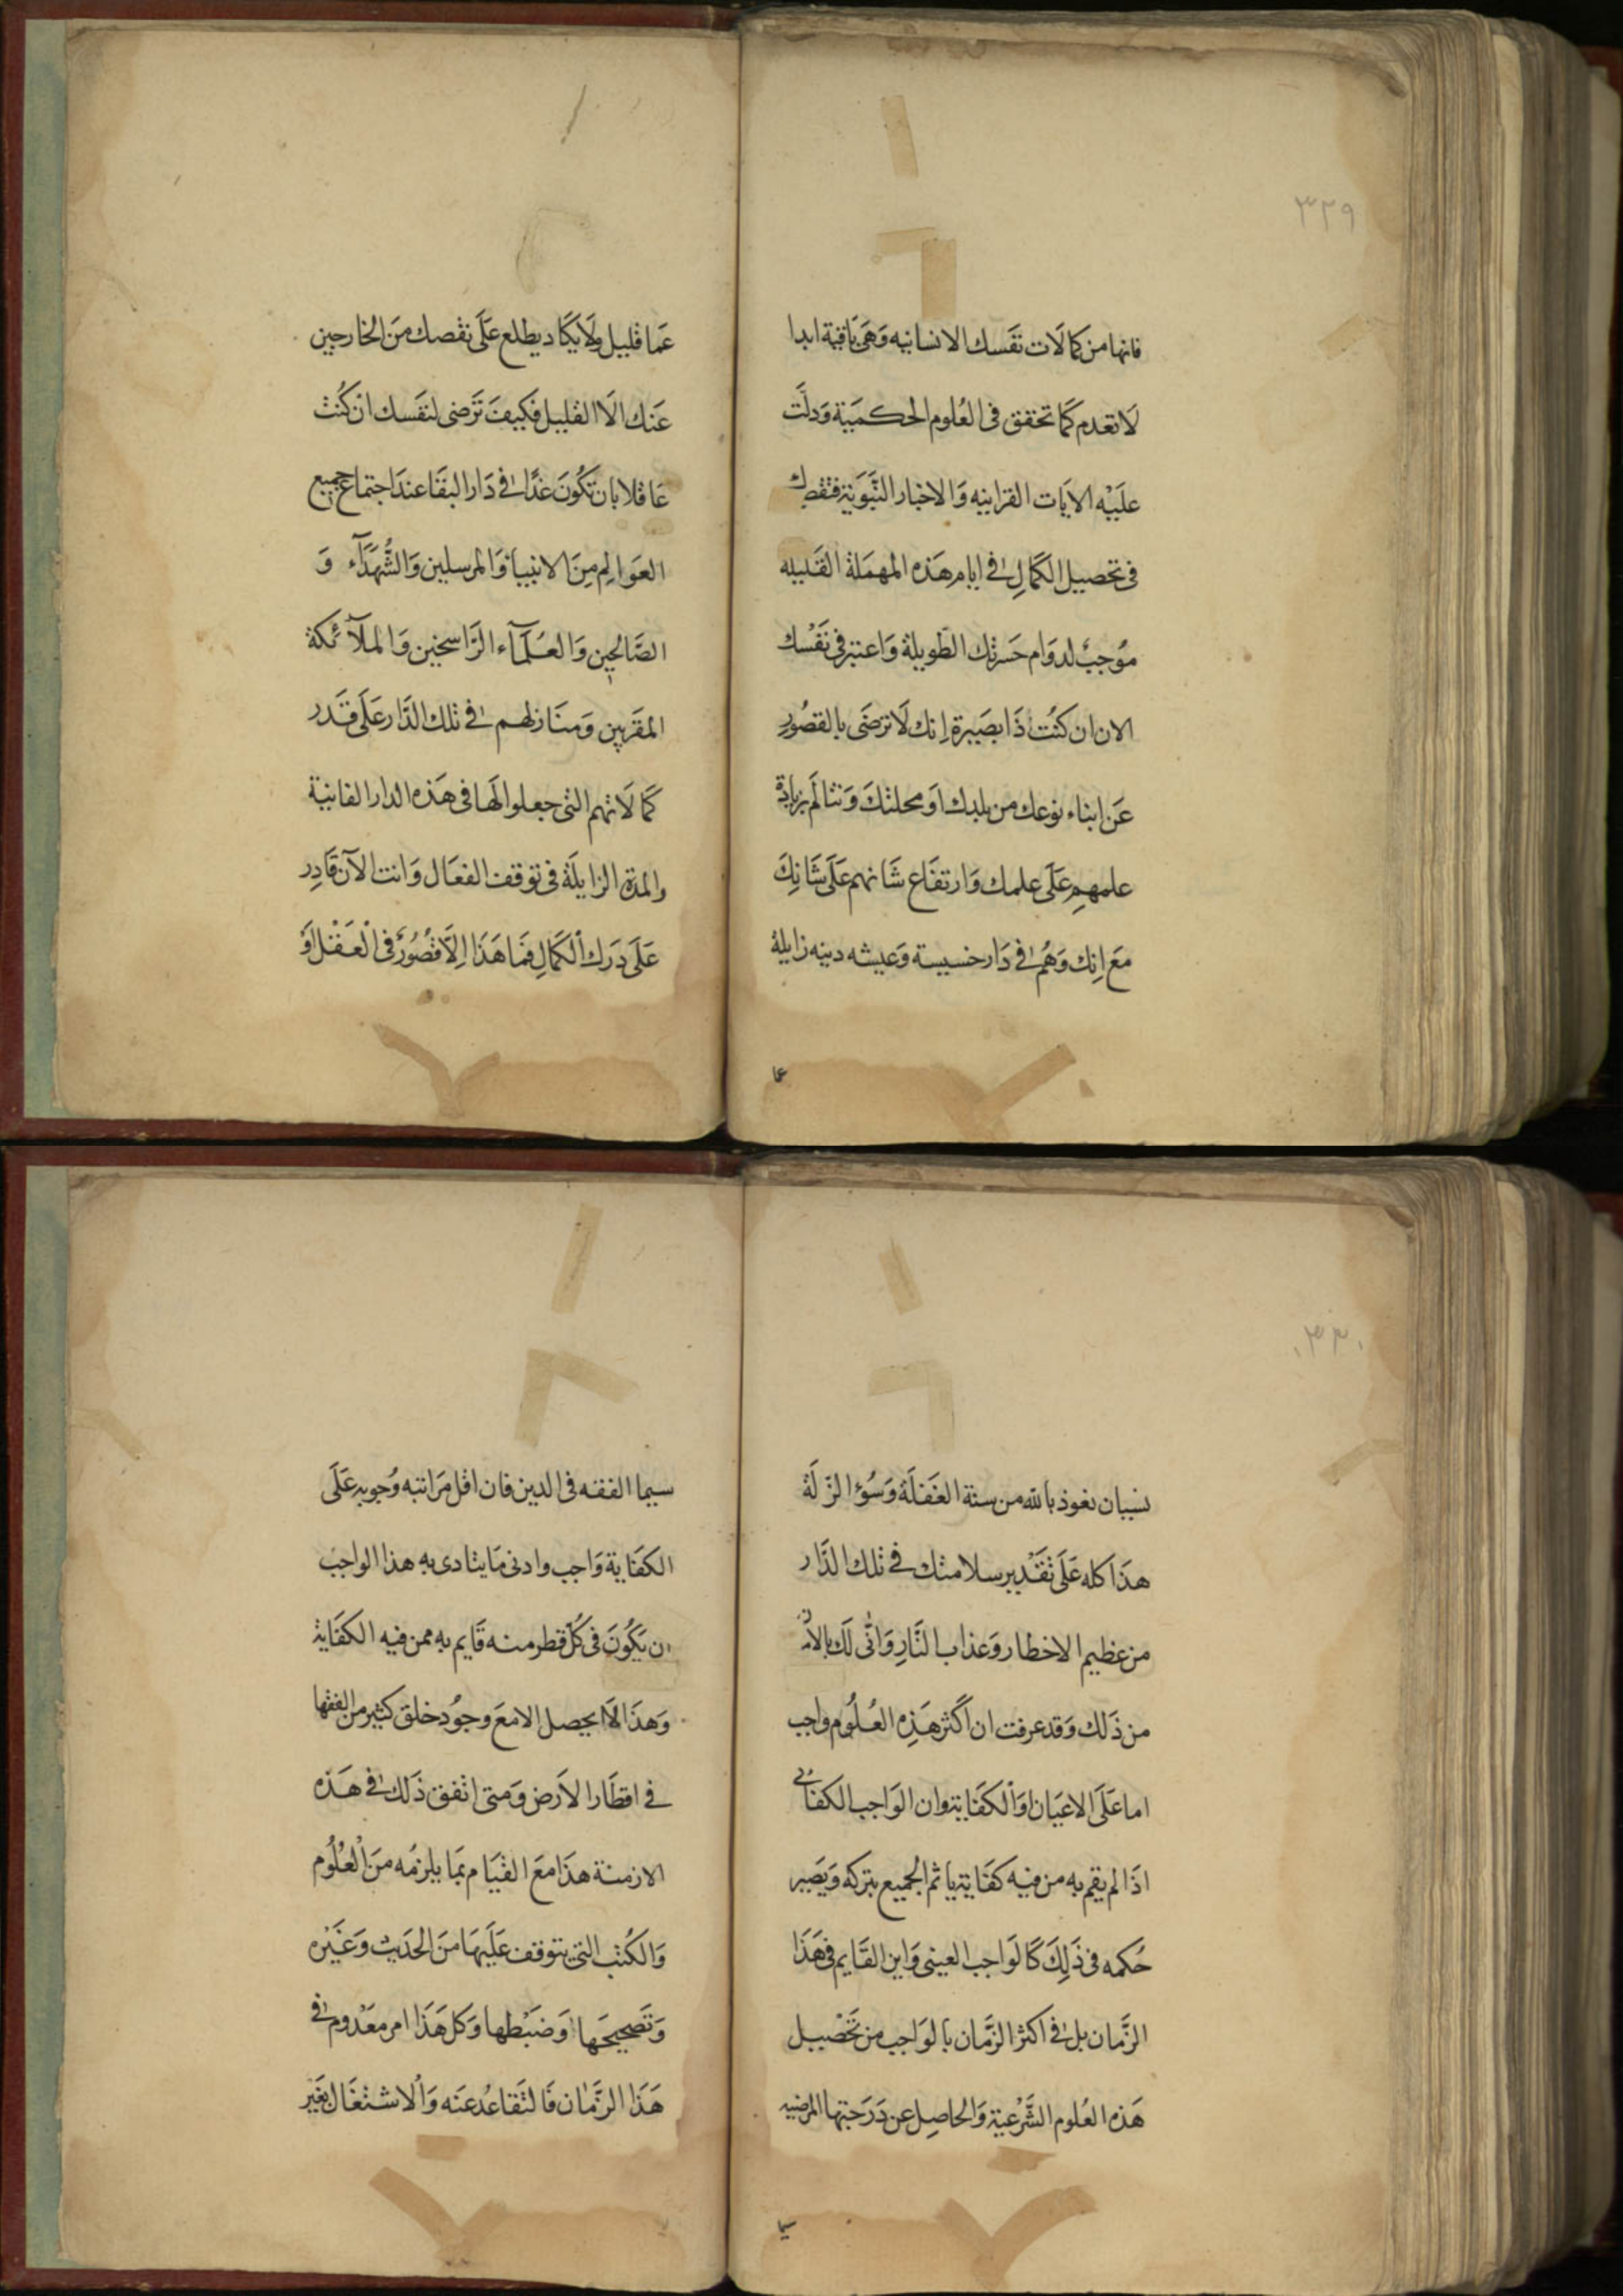 ٣٢٩
فانها من كمالات نفسك الانسانيه وهى باقية ابدا
لا تعدم كما تحقق فى العلوم الحكمية ودلت
عليه الايات القرانيه والاخبار النبوية فتقصيرك
فى تحصيل الكمال فى ايام هذه المهملة القليله
موجب لدوام حسرتك الطويلة واعتبر فى نفسك
الان ان كنت ذا بصيرة انك لا ترضى بالقصور
عن ابناء نوعك من بلدك او محلتك وتتالم بزيادة
علمهم على علمك وارتفاع شانهم على شانك
مع انك وهم فى دار خسيسة وعيشه دنيه زايلة
عما
عما قليل ولا يكاد يطلع على نقصك من الخارجين
عنك الا القليل فكيف ترضى لنفسك ان كنت
عاقلا بان تكون غدا فى دار البقا عند اجتماع جميع
العوالم من الانبيا والمرسلين والشهدآء و
الصالحين والعلمآء الراسخين والملآئكة
المقربين ومنازلهم فى تلك الدار على قدر
كمالاتهم التى جعلوا لها فى هذه الدار الفانية
والمدة الزايلة فى توقف الفعال وانت الآن قادر
على درك الكمال فما هذا الا قصور فى العقل او
٣٣٠
نسيان نعوذ بالله من سنة الغفلة وسؤ الزلة
هذا كله على تقدير سلامتك فى تلك الدار
من عظيم الاخطار وعذاب النار وانى لك بالامن
من ذلك وقد عرفت ان اكثر هذه العلوم واجب
اما على الاعيان او الكفاية وان الواجب الكفائى
اذا لم يقم به من فيه كفاية ياثم الجميع بتركه ويصير
حكمه فى ذلك كالواجب العينى واين القايم فى هذا
الزمان بل فى اكثر الزمان بالواجب من تحصيل
هذه العلوم الشرعية والحاصل عن درجتها المرضيه
سيما
سيما الفقه فى الدين فان اقل مراتبه وجوبه على
الكفاية واجب وادنى ما يتادى به هذا الواجب
ان يكون فى كل قطر منه قايم به ممن فيه الكفاية
وهذا لا يحصل الا مع وجود خلق كثير من الفقها
فى اقطار الارض ومتى اتفق ذلك فى هذه
الازمنة هذا مع القيام بما يلزمه من العلوم
والكتب التى يتوقف عليها من الحديث وغيره
وتصحيحها وضبطها وكل هذا امر معدوم فى
هذا الزمان فالتقاعد عنه والاشتغال بغير